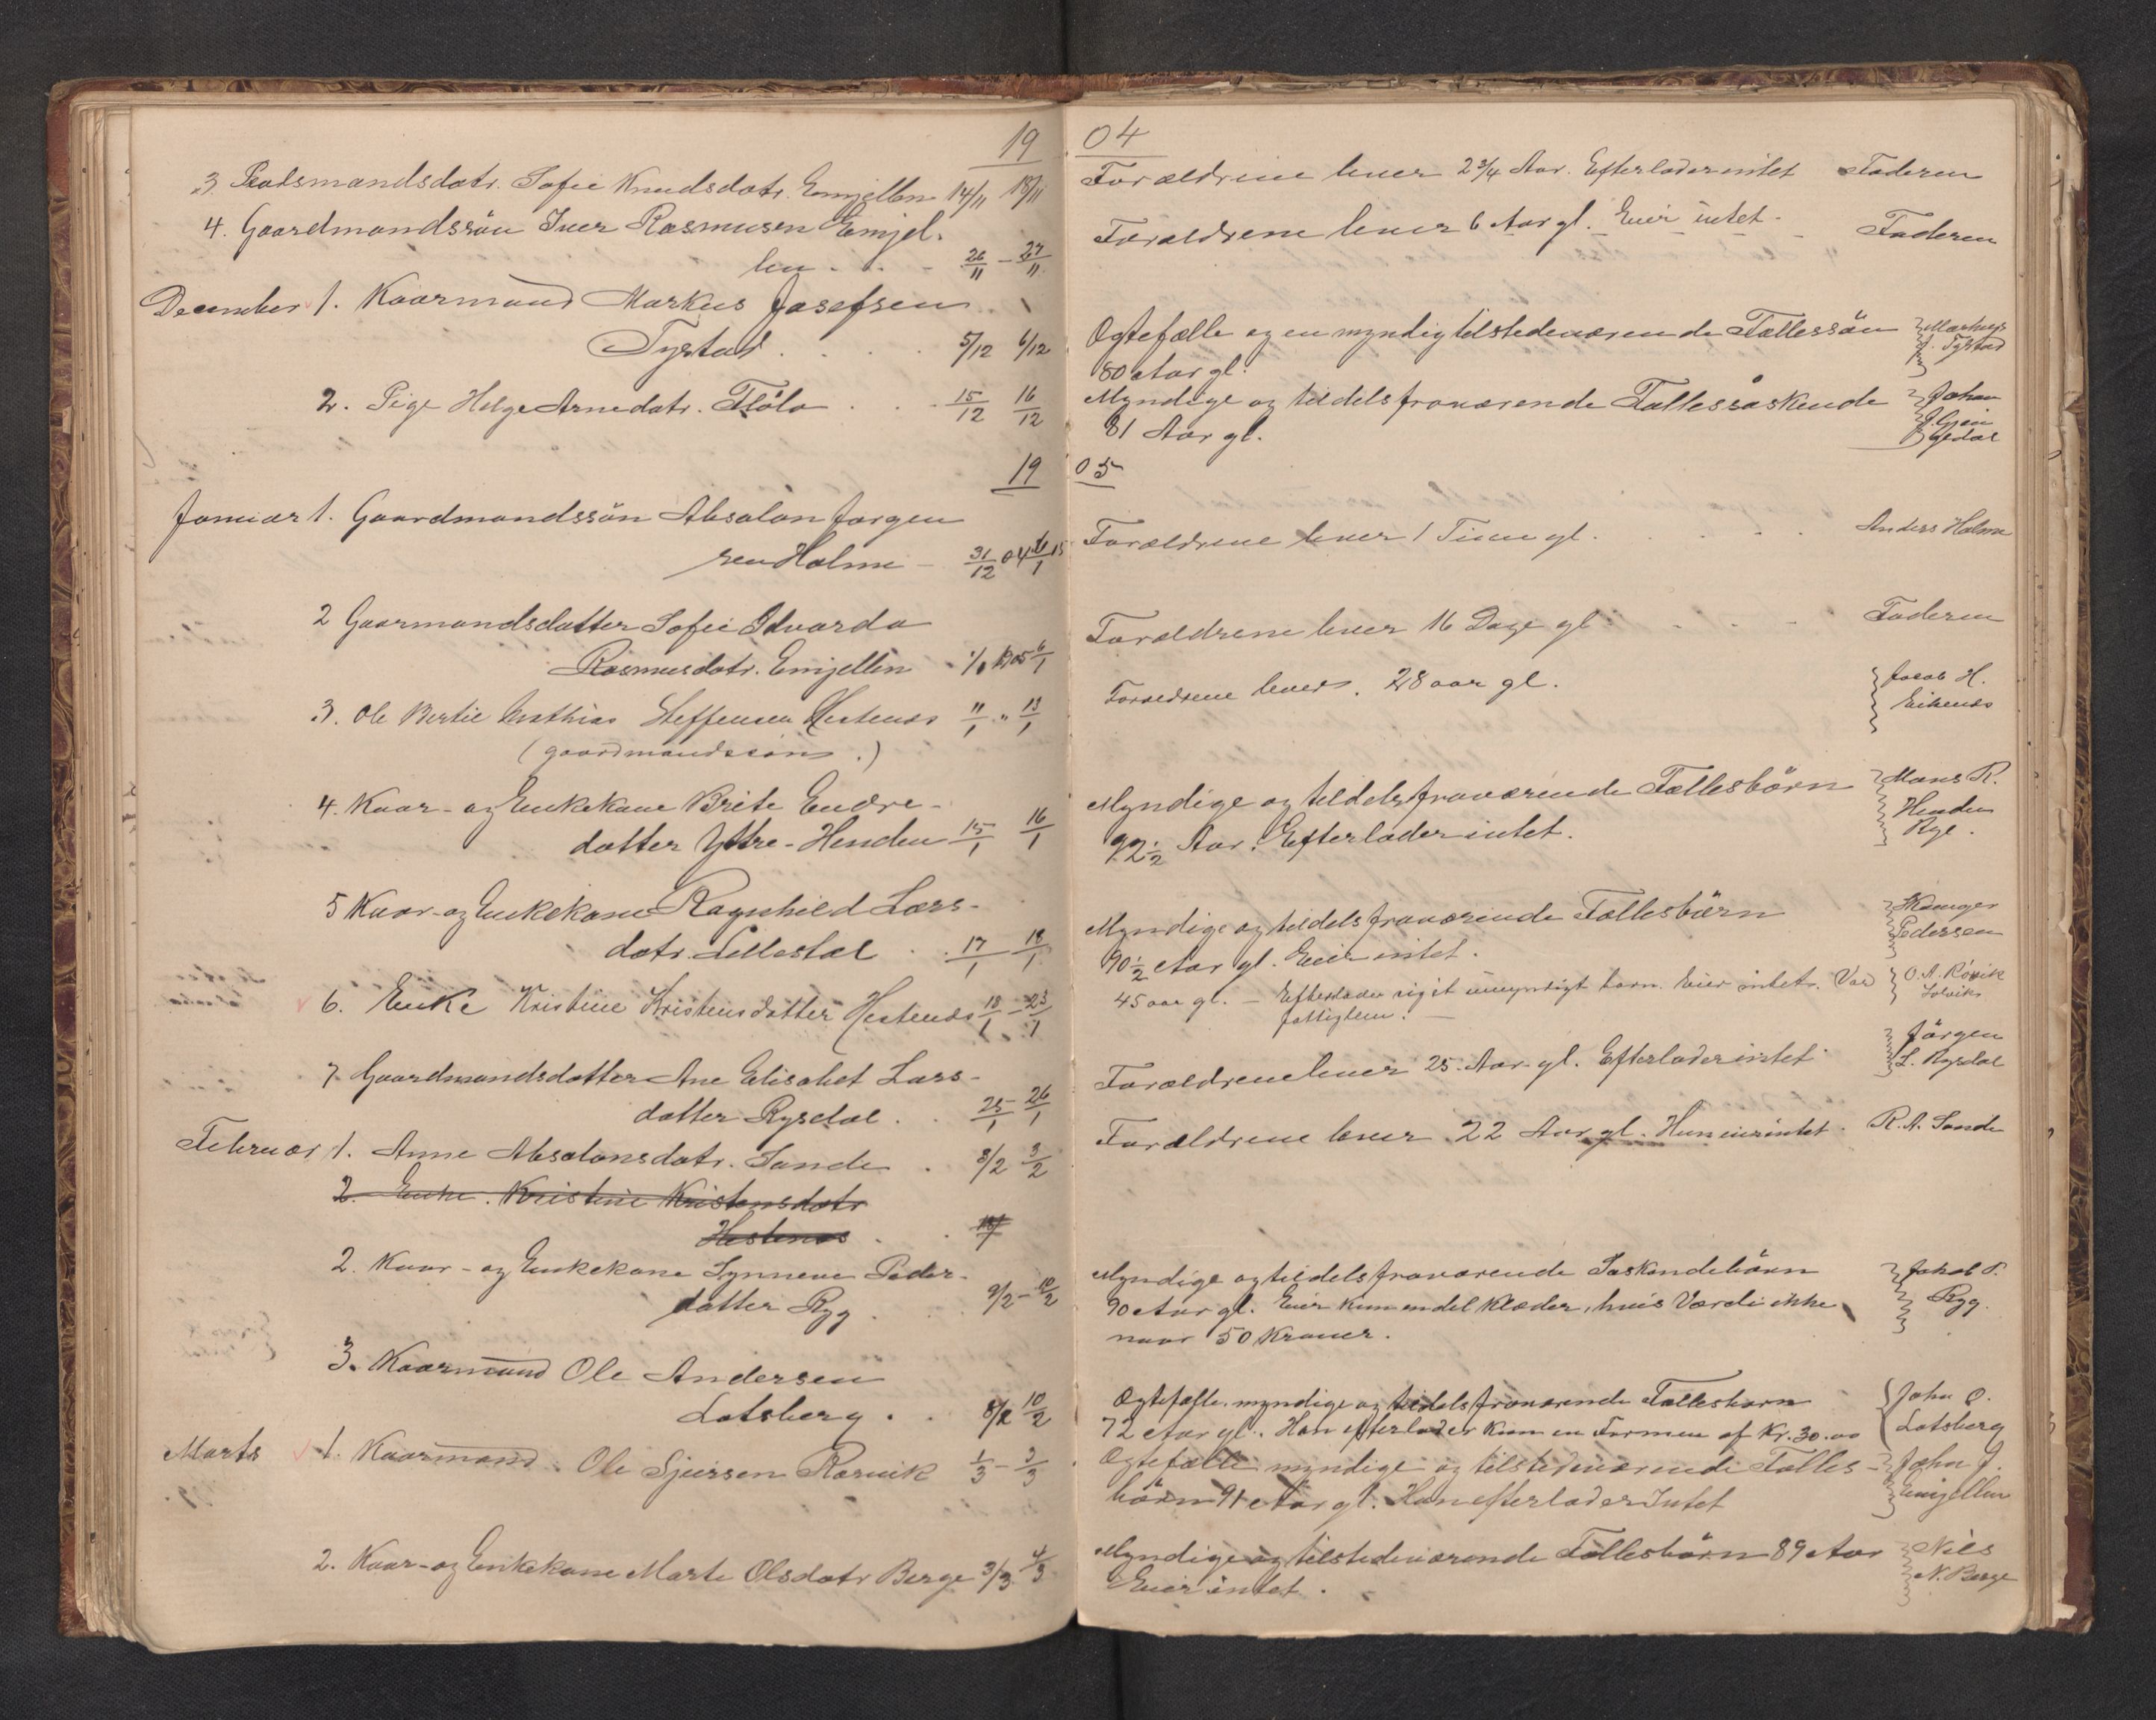 19
3 Pladsmandsdatr. Sofie Knudsdatr. Emjellen 14/11 18/11
4. Gaardmandssön Iver Rasmusen Emjel-
len . . - 26/11 - 27/11
December 1. Kaarmand Markus Josefsen
Tystad . . . 5/12 6/12
2. Pige Helge Arnedatr. Flölo . . . 15/12 16/12
19
Januar 1. Gaardmandssön Absalon Jørgen
sen Holme - 31/12 04
2 Gaarmandsdatter Sofie Edvarda
Rasmusdatr. Emjellen 1/1 1905 6/1
3. Ole Bertil Mathias Steffensen Hestenæs 11/1 " 13/1
(gaardmandssøn.)
4. Kaar- og Enkekone Brite Endre-
datter Yttre-Henden 15/1 16/1
5 Kaar- og Enkekone Ragnhild Lars-
datr. Lillestøl . . 17/1 18/1
6. Enke Kristine Kristensdatter Hestenæs 18/1 - 23/1
7. Gaardmandsdatter Ane Elisabet Lars-
datter Rysdal . . 25/1 26/1
Februar 1. Anne Absalonsdatr. Sande . 3/2 3/2
2. Enke. Kristine Kristensdatr
Hestenæs .
2. Kaar- og Enkekone Synneve Peder-
datter Ryg . . 9/2 - 10/2
3. Kaarmand Ole Andersen
Lotsberg . . 8/2 10/2
Marts 1. Kaarmand. Ole Sjursen Rørvik 1/3 - 3/3
2. Kaar- og Enkekone Marte Olsdatr Berge 3/3 4/3
04
Forældrene lever 2 3/4 Aar. Efterlader intet Faderen
Forældrene lever 6 Aar gl. Eier intet - Faderen
Ægtefælle og en myndig tilstedeværende Fællessön Markus
J. Tystad
80 Aar gl.
Myndige og tildels fraværende Fællessøskende Johan
81 Aar gl.
05
Forældrene lever 1 Time gl. . . . Anders Holme
Forældrene lever 16 Dage gl . - . - Faderen
Forældrene lever. 28 aar gl. Jacob H.
Eikenæs
Myndige og tildels fraværende Fællesbörn Mons R.
Henden
92 1/2 Aar. Efterlader intet. Ryg.
Myndige og tildels fraværende Fællesbörn
Pedersen
90 1/2 Aar gl. Eier intet.
45 aar gl. - Efterlader sig et umyndigt barn. Eier intet. Var O. A. Rövik
fattiglem. - Solvik
Jörgen
Forældrene lever 25 Aar gl. Efterlader intet L. Rysdal
Forældrene lever 22 Aar gl. Hun eier intet. R. A. Sande
Myndige og tildels fraværende Søskendebörn Jakob P.
90 Aar gl. Eier kun en del Klæder, hvis Værdi ikke Ryg.
naar 50 Kroner.
Ægtefælle, myndige og tildels fraværende Fællesbørn John O.
72 Aar gl. Han efterlader kun en Formue af Kr. 30.00 Lotsberg
Ægtefælle myndige og tilstedeværende Fælles- John J.
börn 91 Aar gl. Han efterlader Intet Emjellen
Myndige og tilstedeværende Fællesbörn 89 Aar Nils
Eier intet. N. Berge